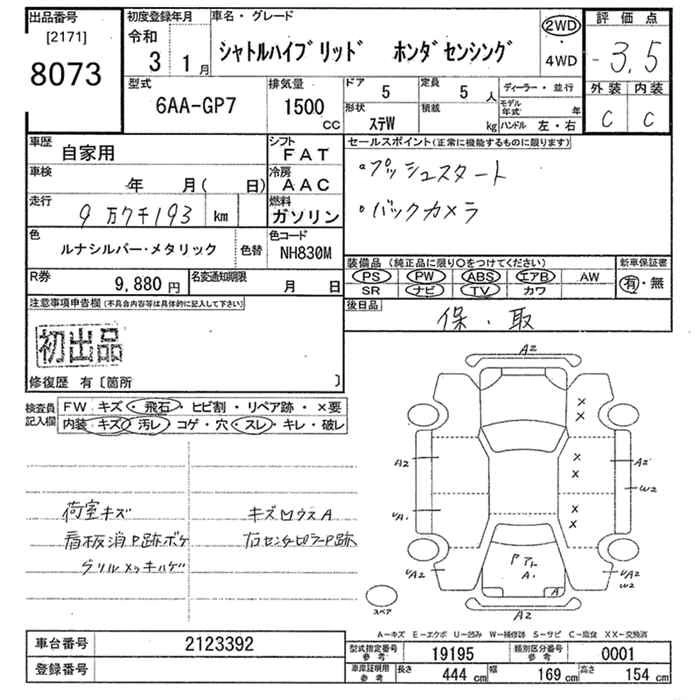 出品番号
[2171]
8073
初度登録年月
令和
3 1月
車名・グレード
シャトルハイブリッド ホンダセンシング
2WD
・
4WD
評価点
3.5
外装 内装
C C
型式
6AA-GP7
排気量
1500
CC
ドア
5
定員
5人
形状
ステW
積載
kg
ディーラー・並行
モデル年式 年
ハンドル 左・右
車歴
自家用
シフト
FAT
車検
年 月( 日)
冷房
AAC
走行
9万7千193 km
燃料
ガソリン
色
ルナシルバー・メタリック
色替
色コード
NH830M
R券
9,880円
名変通知期限
月 日
セールスポイント(正常に機能するものに限ります)
・プッシュスタート
・バックカメラ
装備品(純正品に限り○をつけてください)
PS PW ABS エアB AW
SR ナビ TV カワ
新車保証書
有・無
後日品
保・取
注意事項申告欄(不具合内容等は具体的に記入して下さい)
初出品
修復歴 有〔箇所 〕
検査員記入欄
FW キズ・飛石・ヒビ割・リペア跡・×要
内装・キズ・汚レ・コゲ・穴・スレ・キレ・破レ
荷室キズ
看板消P跡ボケ
グリルメッキハゲ
キズロウスA
右センターピラーP跡
A2
A2
UA1
UA2
A2
W2
UA2
W2
Pアト
A1
A
A2
スペア
A-キズ E-エクボ U-凹み W-補修跡 S-サビ C-腐食 XX-交換済
車台番号
2123392
登録番号
型式指定番号参考
19195
類別区分番号参考
0001
車庫証明用参考
長さ 444 cm
幅 169 cm
高さ 154 cm